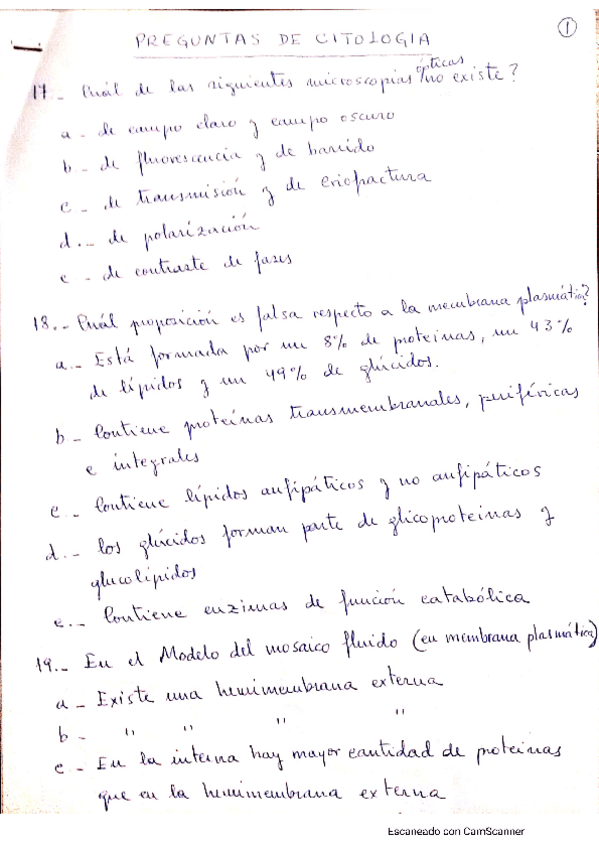 1
PREGUNTAS DE CITOLOGIA
17.- Cuál de las siguientes microscopias ópticas no existe?
a - de campo claro y campo oscuro
b - de fluorescencia y de barrido
c - de transmisión y de criofractura
d.- de polarización
e - de contraste de fases
18.- Cuál proposición es falsa respecto a la membrana plasmática?
a.- Está formada por un 8% de proteinas, un 43%
de lípidos y un 49% de glúcidos.
b - Contiene proteínas transmembranales, periféricas
e integrales
c.- Contiene lípidos anfipáticos y no anfipáticos
d.- los glúcidos forman parte de glicoproteinas y
glucolípidos
e.- Contiene enzimas de función catabólica
19.- En el Modelo del mosaico fluido (en membrana plasmática)
a - Existe una hemimembrana externa
b - " " " "
c - En la interna hay mayor cantidad de proteinas
que en la hemimembrana externa
Escaneado con CamScanner